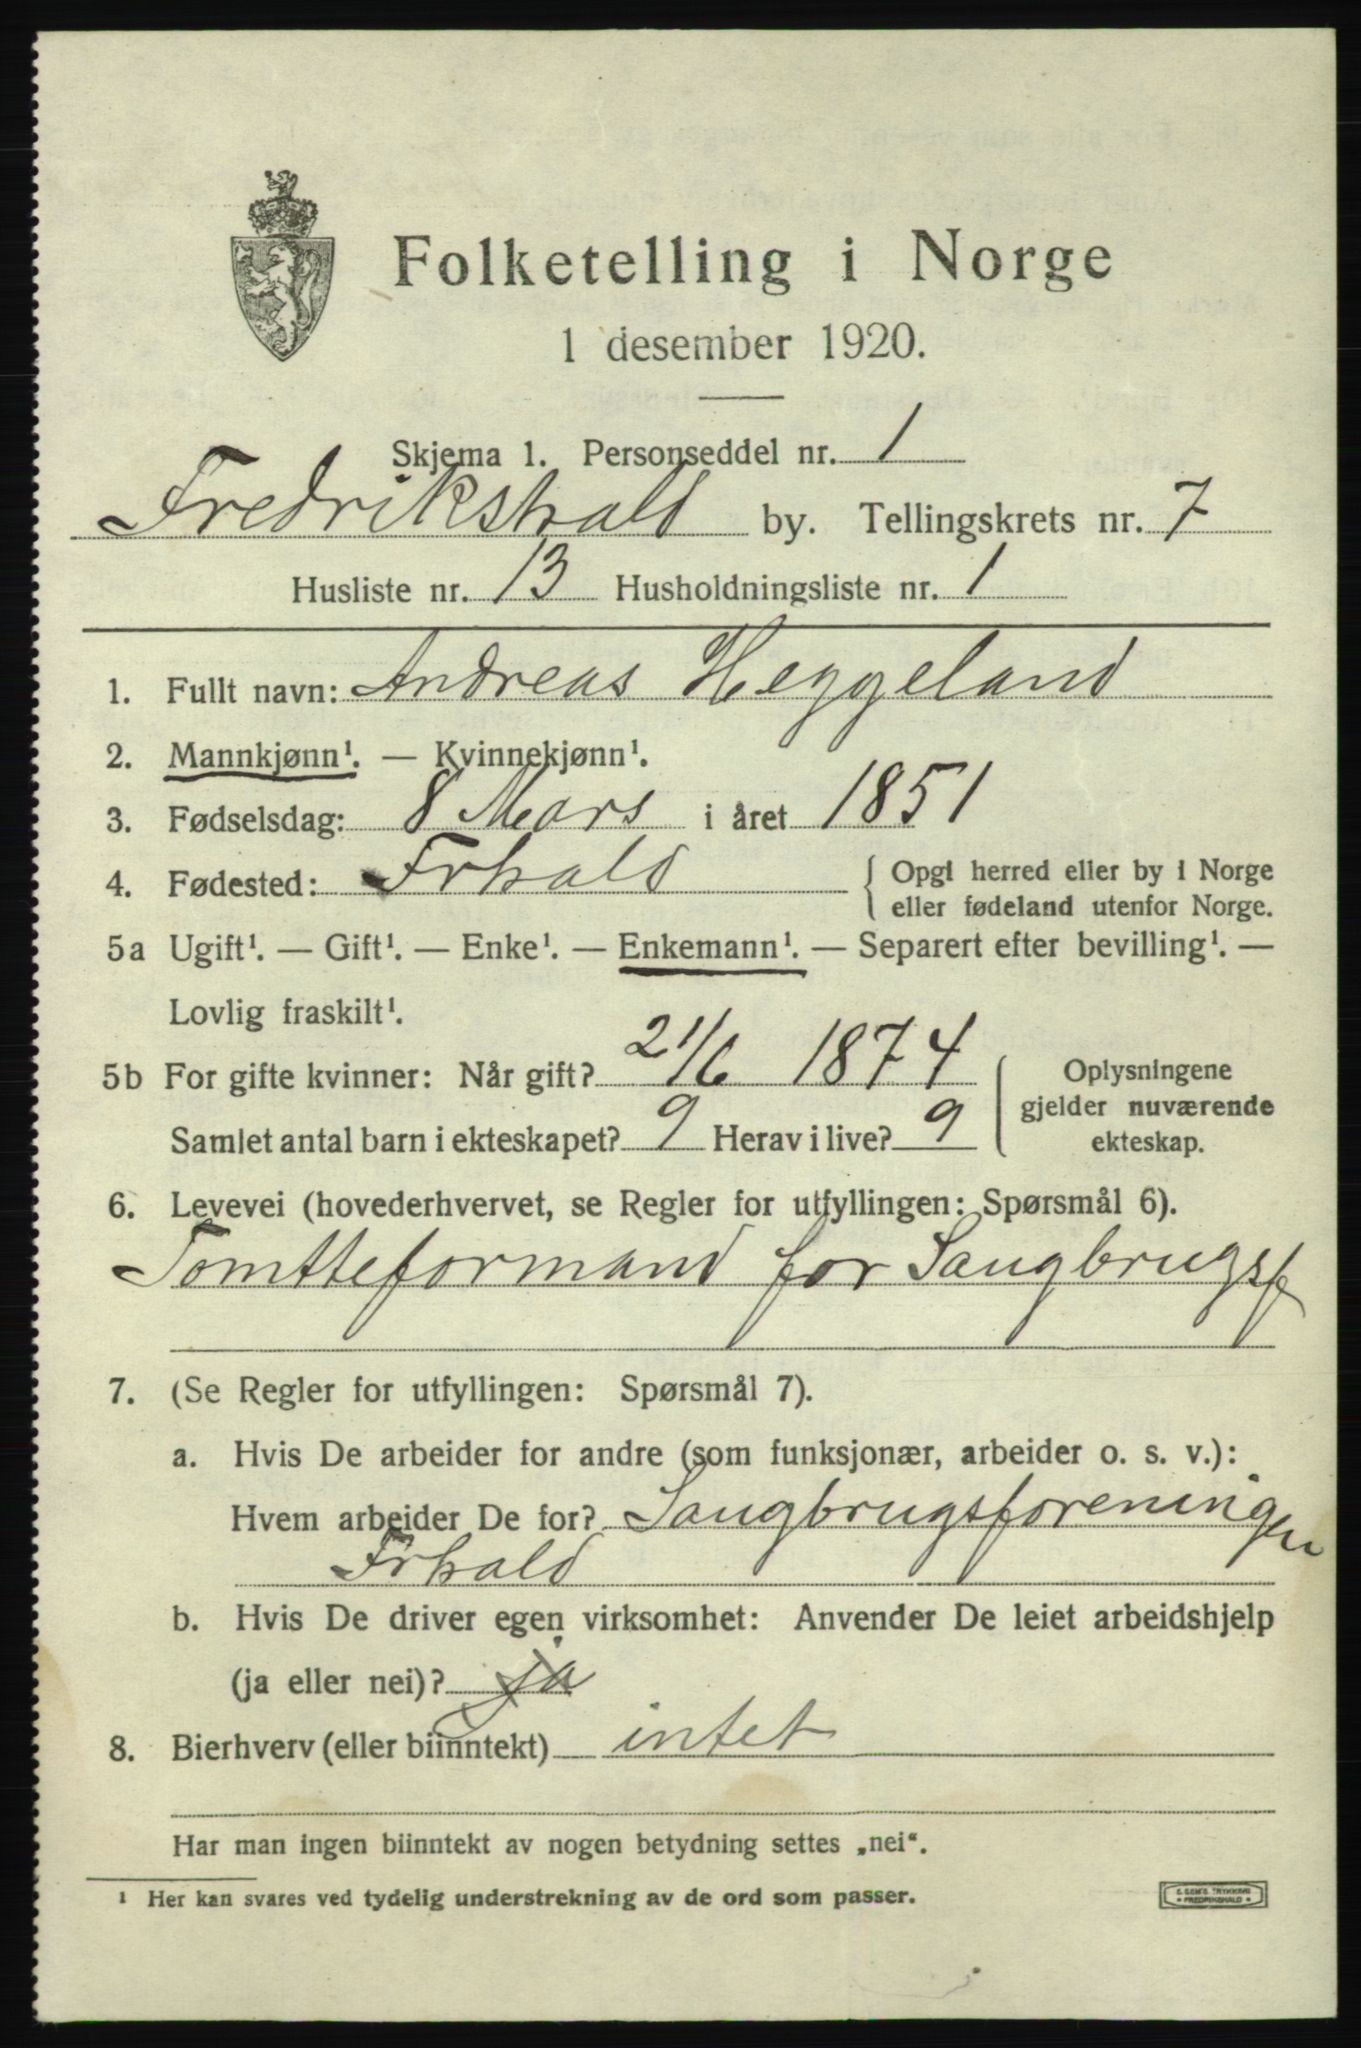 Folketelling i Norge
1 desember 1920.
Skjema 1. Personseddel nr. 1
Fredrikshald by. Tellingskrets nr. 7
Husliste nr. 13 Husholdningsliste nr. 1
1. Fullt navn: Andreas Heggeland
2. Mannkjønn¹. — Kvinnekjønn¹.
3. Fødselsdag: 8 Mars i året 1851
4. Fødested: Frhald { Opgi herred eller by i Norge
eller fødeland utenfor Norge.
5a Ugift¹. — Gift¹. — Enke¹. — Enkemann¹. — Separert efter bevilling¹. —
Lovlig fraskilt¹.
5b For gifte kvinner: Når gift? 21/6 1874
Samlet antal barn i ekteskapet? 9 Herav i live? 9
{ Oplysningene
gjelder nuværende
ekteskap.
6. Levevei (hovederhvervet, se Regler for utfyllingen: Spørsmål 6).
Tomtteformand for Saugbrugsf
7. (Se Regler for utfyllingen: Spørsmål 7).
a. Hvis De arbeider for andre (som funksjonær, arbeider o. s. v.):
Hvem arbeider De for? Saugbrugsforeningen
Frhald
b. Hvis De driver egen virksomhet: Anvender De leiet arbeidshjelp
(ja eller nei)? ja
8. Bierhverv (eller biinntekt) intet
Har man ingen biinntekt av nogen betydning settes „nei“.
¹ Her kan svares ved tydelig understrekning av de ord som passer.
TRYKKERI
FREDRIKSHALD